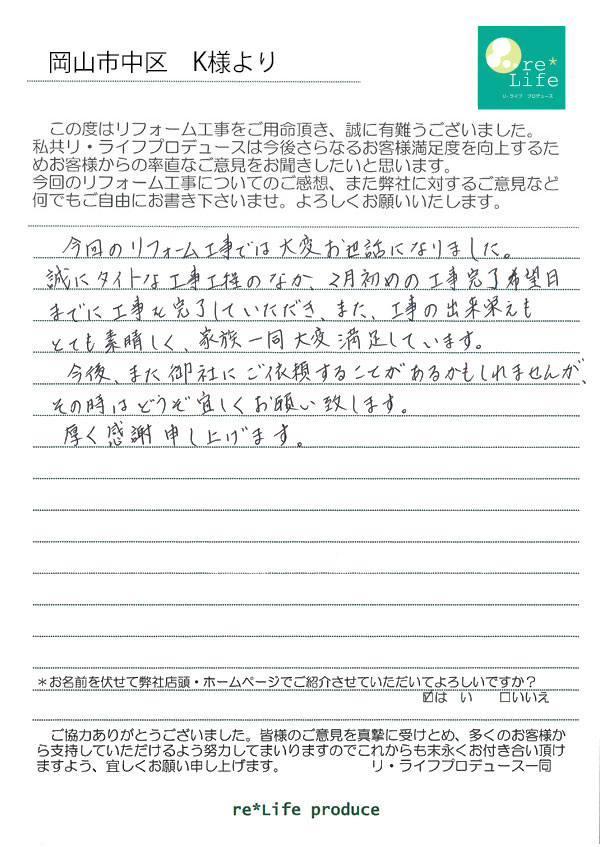 岡山市中区　K様より
re*
Life
リ・ライフ　プロデュース
この度はリフォーム工事をご用命頂き、誠に有難うございました。
私共リ・ライフプロデュースは今後さらなるお客様満足度を向上するた
めお客様からの率直なご意見をお聞きしたいと思います。
今回のリフォーム工事についてのご感想、また弊社に対するご意見など
何でもご自由にお書き下さいませ。よろしくお願いいたします。
今回のリフォーム工事では大変お世話になりました。
誠にタイトな工事工程のなか、2月初めの工事完了希望日
までに工事を完了していただき、また、工事の出来栄えも
とても素晴しく、家族一同大変満足しています。
今後、また御社にご依頼することがあるかもしれませんが、
その時はどうぞ宜しくお願い致します。
厚く感謝申し上げます。
＊お名前を伏せて弊社店頭・ホームページでご紹介させていただいてよろしいですか？
☑は　い　□いいえ
ご協力ありがとうございました。皆様のご意見を真摯に受けとめ、多くのお客様か
ら支持していただけるよう努力してまいりますのでこれからも末永くお付き合い頂け
ますよう、宜しくお願い申し上げます。　リ・ライフプロデュース一同
re*Life produce